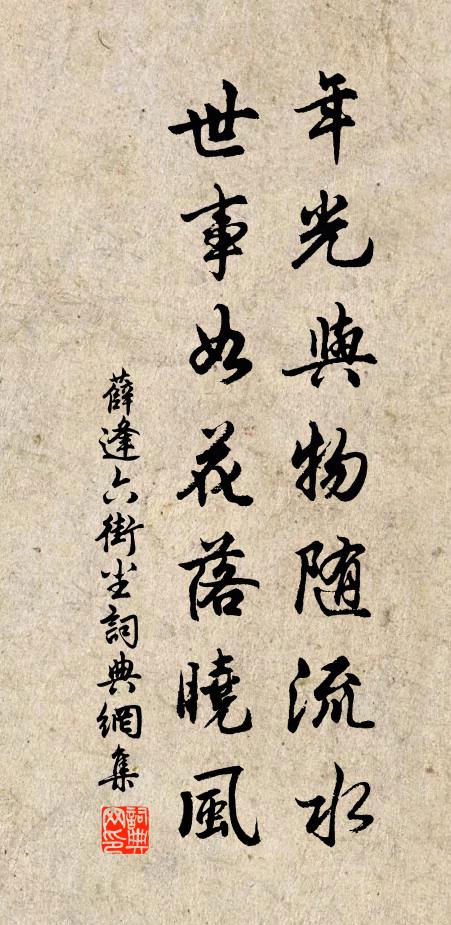 年光與物随流水
世事如花落曉風
薛逢六街尘詞典網集
詞典网印